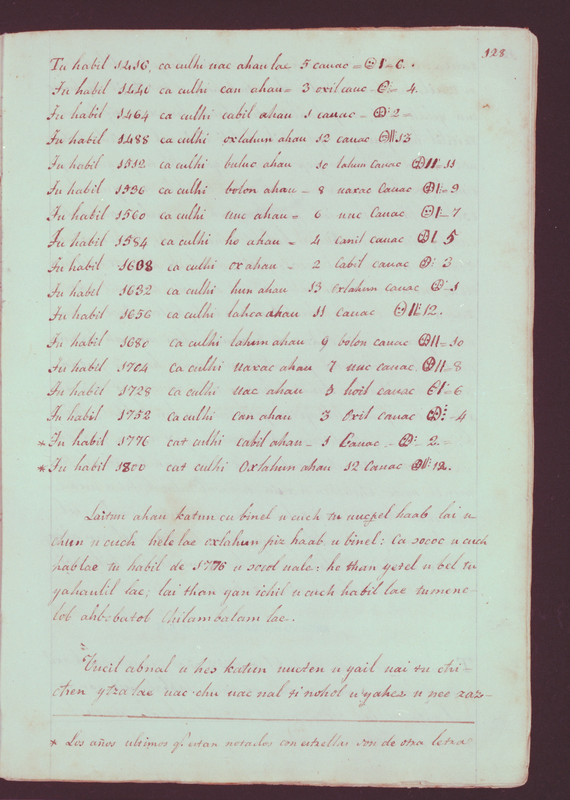 128
Tu habil 1416, ca culhi uac ahau lae 5 cauac =
Tu habil 1440 ca culhi can ahau = 3 oxil cauc = 4.
Tu habil 1464 ca culhi cabil ahau 1 cauac = 2 =
Tu habil 1488 ca culhi oxlahun ahau 12 cauac 13
Tu habil 1512 ca culhi buluc ahau - 10 lahun cauac 11
Tu habil 1536 ca culhi bolon ahau = 8 uaxac cauac = 9
Tu habil 1560 ca culhi uuc ahau = 6 uac cauac = 7
Tu habil 1584 ca culhi ho ahau = 4 canil cauac 5
Tu habil 1608 ca culhi ox ahau - 2 cabil cauac 3
Tu habil 1632 ca culhi hun ahau 13 oxlahun cauac 1
Tu habil 1656 ca culhi lahca ahau 11 cauac 12.
Tu habil 1680 ca culhi lahun ahau 9 bolon cauac = 10
Tu habil 1704 ca culhi uaxac ahau 7 uuc cauac = 8
Tu habil 1728 ca culhi uac ahau 5 hoil cauac = 6
Tu habil 1752 ca culhi can ahau 3 oxil cauac - 4
* Tu habil 1776 cat culhi cabil ahau - 1 Cauac - 2 =
* Tu habil 1800 cat culhi Oxlahun ahau 12 Cauac 12.
Laitun ahau katun cu binel u cuch tu uucpel haab lai u
chun u cuch hele lae oxlahun piz haab u binel: Ca sococ u cuch
hab lae tu habil de 1776 u socol uale: he than yesel u bel tu
yahaulil lae; lai than yan ichil u cuch habil lae tumene-
lob ahbobatob Chilambalam lae.
Vucil abnal u hes katun uucten u yail uai tu chi-
chen ytza lae uac chu uac nal ti nohol u yahez u nee zaz-
* Los años ultimos q.e estan notados con estrellas son de otra letra